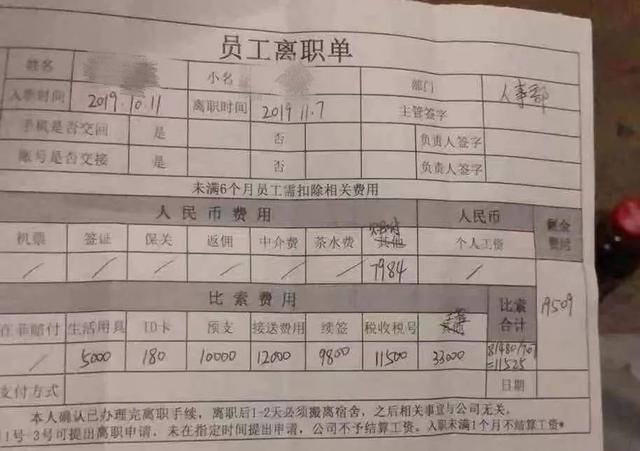 员工离职单
姓名 小名 部门 人事部
入职时间 2019.10.11 离职时间 2019 11.7 主管签字
手机是否交回 是 否 负责人签字
账号是否交接 是 否 负责人签字
未满6个月员工需扣除相关费用
人民币费用 人民币 剩余费用
机票 签证 保关 返佣 中介费 茶水费 个人工资
/ / / / / / 7984 / 19509
比索费用 比索合计
在菲赔付 生活用具 ID卡 预支 接送费用 续签 税收税号
/ 5000 180 10000 12000 9800 11500 33000 81480/7.07
=11525
支付方式 日期
本人确认已办理完离职手续，离职后1-2天必须搬离宿舍，之后相关事宜与公司无关。
11号-3号可提出离职申请，未在指定时间提出申请，公司不予结算工资。入职未满1个月不结算工资*